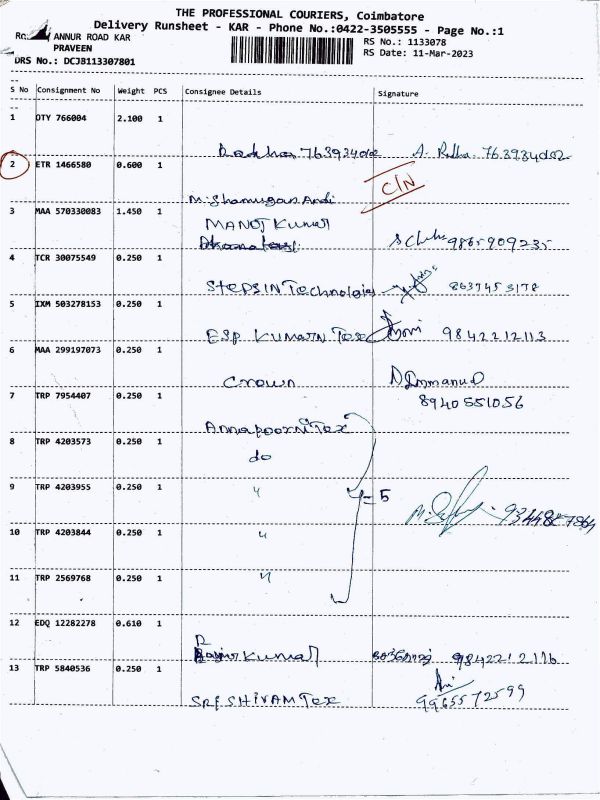 THE PROFESSIONAL COURIERS, Coimbatore
Delivery Runsheet - KAR - Phone No.:0422-3505555 - Page No.:1
ANNUR ROAD KAR
PRAVEEN
DRS No.: DCJ8113307801
RS No.: 1133078
RS Date: 11-Mar-2023
S No Consignment No Weight PCS Consignee Details Signature
1 OTY 766004 2.100 1
Radha 763934002 A. Radha 763934002
2 ETR 1466580 0.600 1 C/N
M. Shanmugan Andi
3 MAA 570330083 1.450 1 MANOJ Kumar
9865909235
4 TCR 30075549 0.250 1
STEPSIN Technologies 8637453178
5 IXM 503278153 0.250 1
ESP KUMARN Tex 9842212113
6 MAA 299197073 0.250 1
Crown D Immanuel
7 TRP 7954407 0.250 1 8940551056
Annapoorni Tex
8 TRP 4203573 0.250 1
do
9 TRP 4203955 0.250 1 〃 = 5
10 TRP 4203844 0.250 1 〃
11 TRP 2569768 0.250 1 〃
12 EDQ 12282278 0.610 1
Kumar 9842212116
13 TRP 5840536 0.250 1
SRI SHIVAM Tex 9965572599